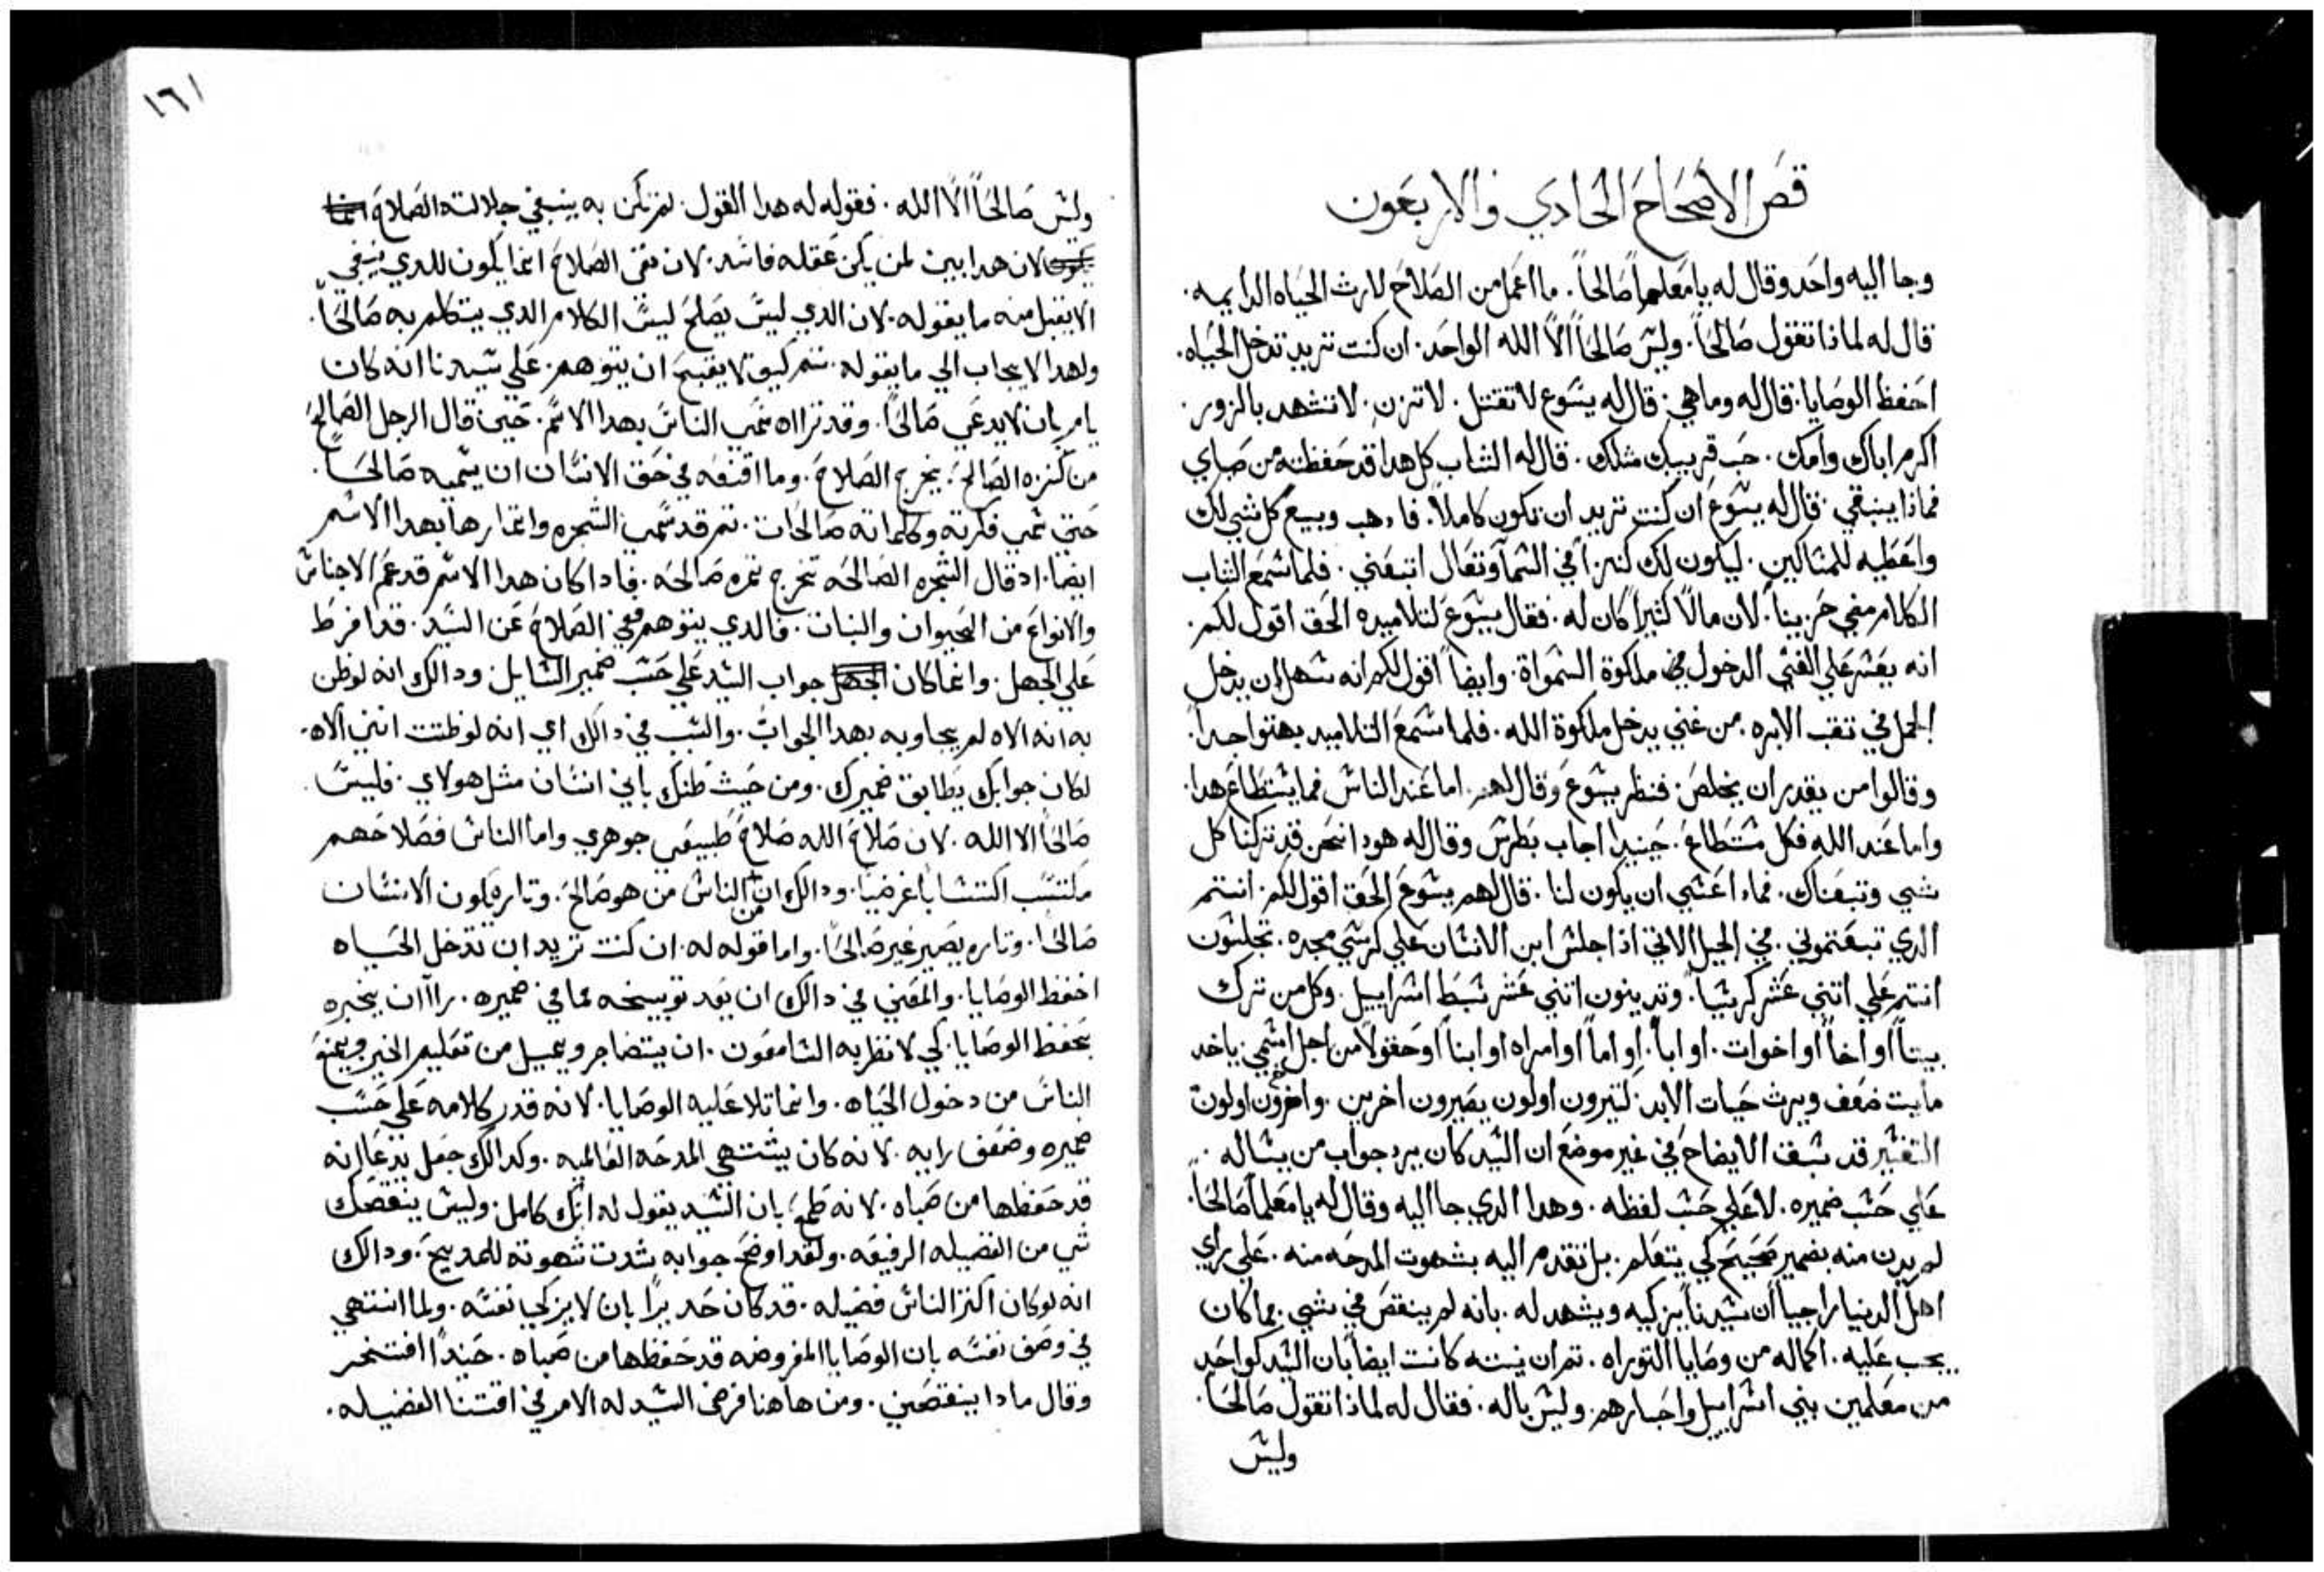 قص الاصحاح الحادي والاربعون
وجا اليه واحد وقال له يا معلماً صالحاً. ما اعمل من الصلاح لارث الحياه الدايمه.
قال له لماذا تقول صالحاً. وليس صالحاً الاَّ الله الواحد. ان كنت تريد تدخل الحياه.
احفظ الوصايا. قال له وما هي. قال له يسوع لا تقتل. لا تزن. لا تشهد بالزور.
اكرم اباك وامك. حب قريبك مثلك. قال له الشاب كل هدا قد حفظته من صباي
فماذا ينبقي. قال له يسوع ان كنت تريد ان تكون كاملاً. فادهب وبيع كل شي لك
واعطيه للمساكين. ليكون لك كنزاً في السما وتعال اتبعني. فلما سمع الشاب
الكلام مضي حزيناً. لان مالاً كثيراً كان له. فقال يسوع لتلاميده الحق اقول لكم.
انه يعسر علي الغني الدخول في ملكوة السمواة. وايضاً اقول لكم انه سهل ان يدخل
الجمل في تقب الابره. من غني يدخل ملكوة الله. فلما سمع التلاميد بهتوا جداً.
وقالوا من يقدر ان يخلص. فنظر يسوع وقال لهم. اما عند الناس فما يستطاع هدا.
واما عند الله فكل مستطاع. حينيدا اجاب بطرس وقال له هودا نحن قد تركنا كل
شي وتبعناك. فمادا عسي ان يكون لنا. قال لهم يسوع الحق اقول لكم. انتم
الدي تبعتموني. في الجيل الاتي اذا جلس ابن الانسان علي كرسي مجده. تجلسون
انتم علي اتني عشر كرسياً. وتدينون اتني عشر سبط اسراييل. وكل من ترك
بيتاً او اخاً او اخوات. او اباً. او اماً او امراه او ابناً او حقولاً من اجل اسمي. ياخد
مايت ضعف ويرث حيات الابد. لتيرون اولون يصيرون اخرين. واخرون اولون
التفسير قد سبق الايضاح في غير موضع ان السيد كان يرد جواب من يساله.
علي حسب ضميره. لا علي حسب لفظه. وهدا الدي جا اليه وقال له يا معلماً صالحاً.
لم يدن منه بضمير صحيح كي يتعلم. بل تقدم اليه بشهوت المدحه منه. علي راي
اهل الدنيا راجياً ان سيدنا يزكيه ويشهد له. بانه لم ينقص في شي. مما كان
يجب عليه. اكماله من وصايا التوراه. تم ان نيته كانت ايضاً بان السيد كواحد
من معلمين بني اسراييل واحبارهم. وليس باله. فقال له لماذا تقول صالحاً.
وليس
١٦١
وليس صالحاً الاَّ الله. فقوله له هدا القول. لم تكن به ينبغي جلالته الصلاح
لان هدا بين لمن يكن عقله فاسد. لان نفي الصلاح انما يكون للدي ينبغي
الا يقبل منه ما يقوله. لان الدي ليس يصلح ليس الكلام الدي يتكلم به صالحاً.
ولهدا لا يجاب الي ما يقوله. تم كيف لا يقبح ان يتوهم. علي سيدنا انه كان
يامر بان لا يدعي صالحاً. وقد نراه سمي الناس بهدا الاسم. حين قال الرجل الصالح
من كنزه الصالح. يخرج الصلاح. وما اقنعه في حق الانسان ان يسميه صالحاً.
حتي سمي فكرته وكلماته صالحات. تم قد سمي الشجره واتمارها بهدا الاسم
ايضاً. اد قال الشجره الصالحه تخرج تمره صالحه. فادا كان هدا الاسم قد عم الاجناس
والانواع من الحيوان والنبات. فالدي يتوهم نفي الصلاح عن السيد. قد افرط
علي الجهل. وانما كان جواب السيد علي حسب ضمير السايل. ودالك انه لو ظن
به انه الاه لم يجاوبه بهدا الجواب. والسبب في دالك اي انه لو ظننت انني الاه.
لكان جوابك يطابق ضميرك. ومن حيث ظنك باني انسان مثل هولاي. فليس
صالحاً الا الله. لان صلاح الله صلاح طبيعي جوهري واما الناس فصلاحهم
مكتسب اكتساباً غرضياً. ودالك ان من الناس من هو صالح. وتاره يكون الانسان
صالحاً. وتاره يصير غير صالحاً. واما قوله له. ان كنت تريد ان تدخل الحياه
احفظ الوصايا. والمعني في دالك ان بعد توبيخه عما في ضميره. راآ ان يخبره
بحفظ الوصايا. كي لا نظر به السامعون. ان يتضاجر ويميل من تعليم الخير ويمنع
الناس من دخول الحياه. وانما تلا عليه الوصايا. لانه قدر كلامه علي حسب
ضميره وضعف رايه. لانه كان يشتهي المدحه العالميه. وكدالك جعل يدعا انه
قد حفظها من صباه. لانه طمع بان السيد يقول له انك كامل. وليس ينقصك
شي من الفضيله الرفيعه. ولقد اوضح جوابه شدت شهوته للمديح. ودالك
انه لو كان اكتر الناس فضيله. قد كان حديراً بان لا يزكي نفسه. ولما انتهي
في وصف نفسه بان الوصايا المفروضه قد حفظها من صباه. حينيداً افتخر
وقال مادا ينقصني. ومن هاهنا فرض السيد له الامر في اقتنا الفضيله.